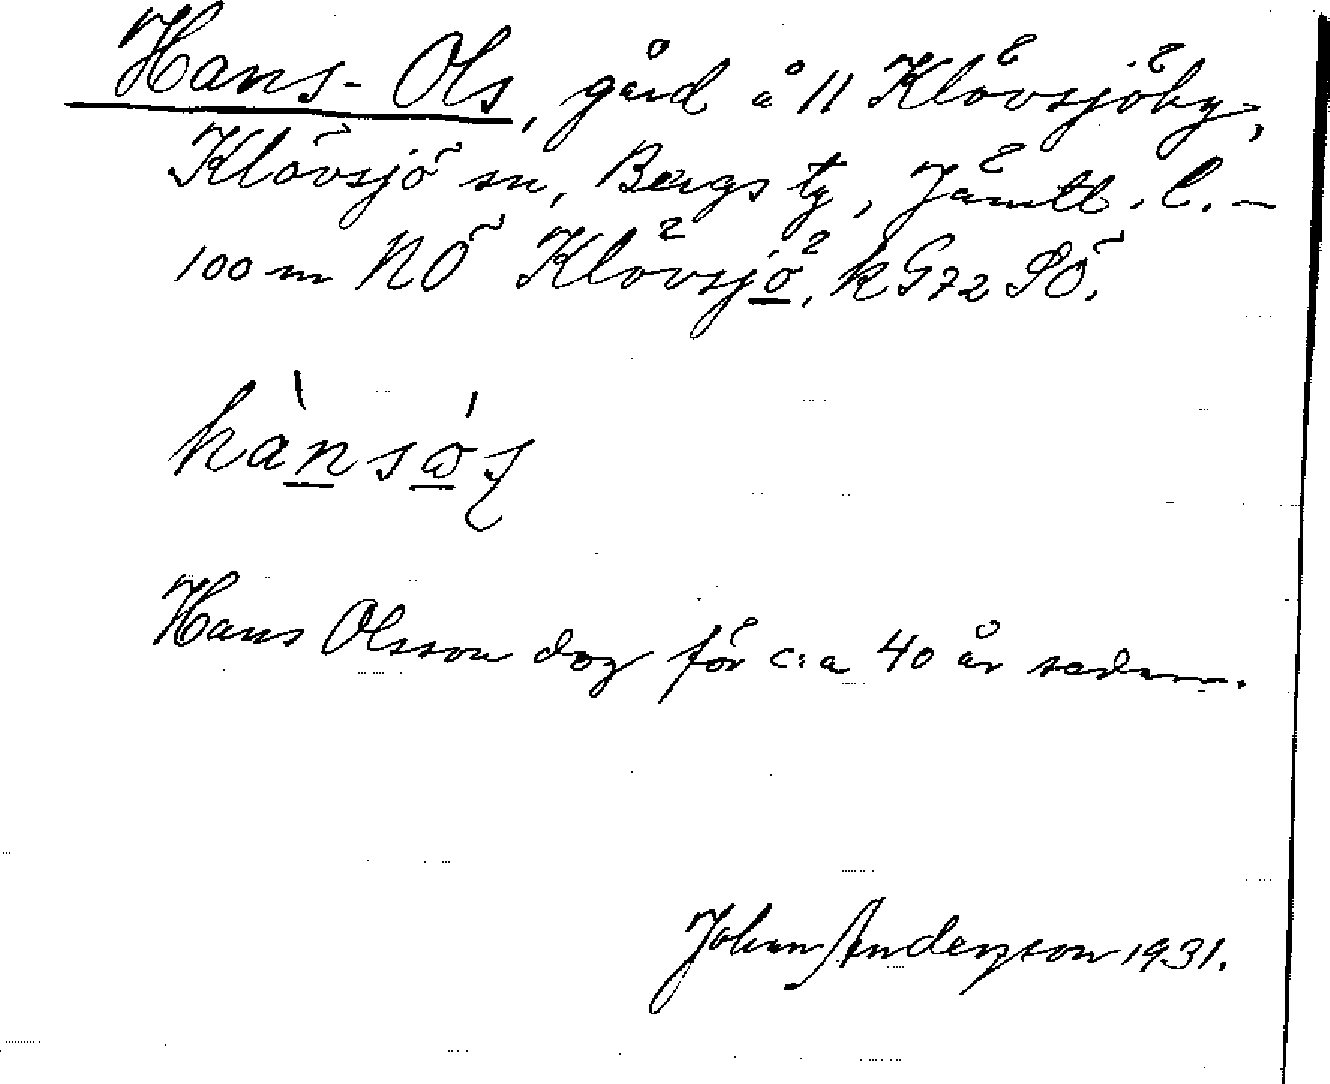 Hans-Ols, gård å 11 Klövsjöby,
Klövsjö sn, Bergs tg, Jämtl. l. –
100 m NÖ Klövsjö, kG72 SÖ.
hànsós
Hans Olsson dog för c:a 40 år sedan.
Johan Anderzson 1931.